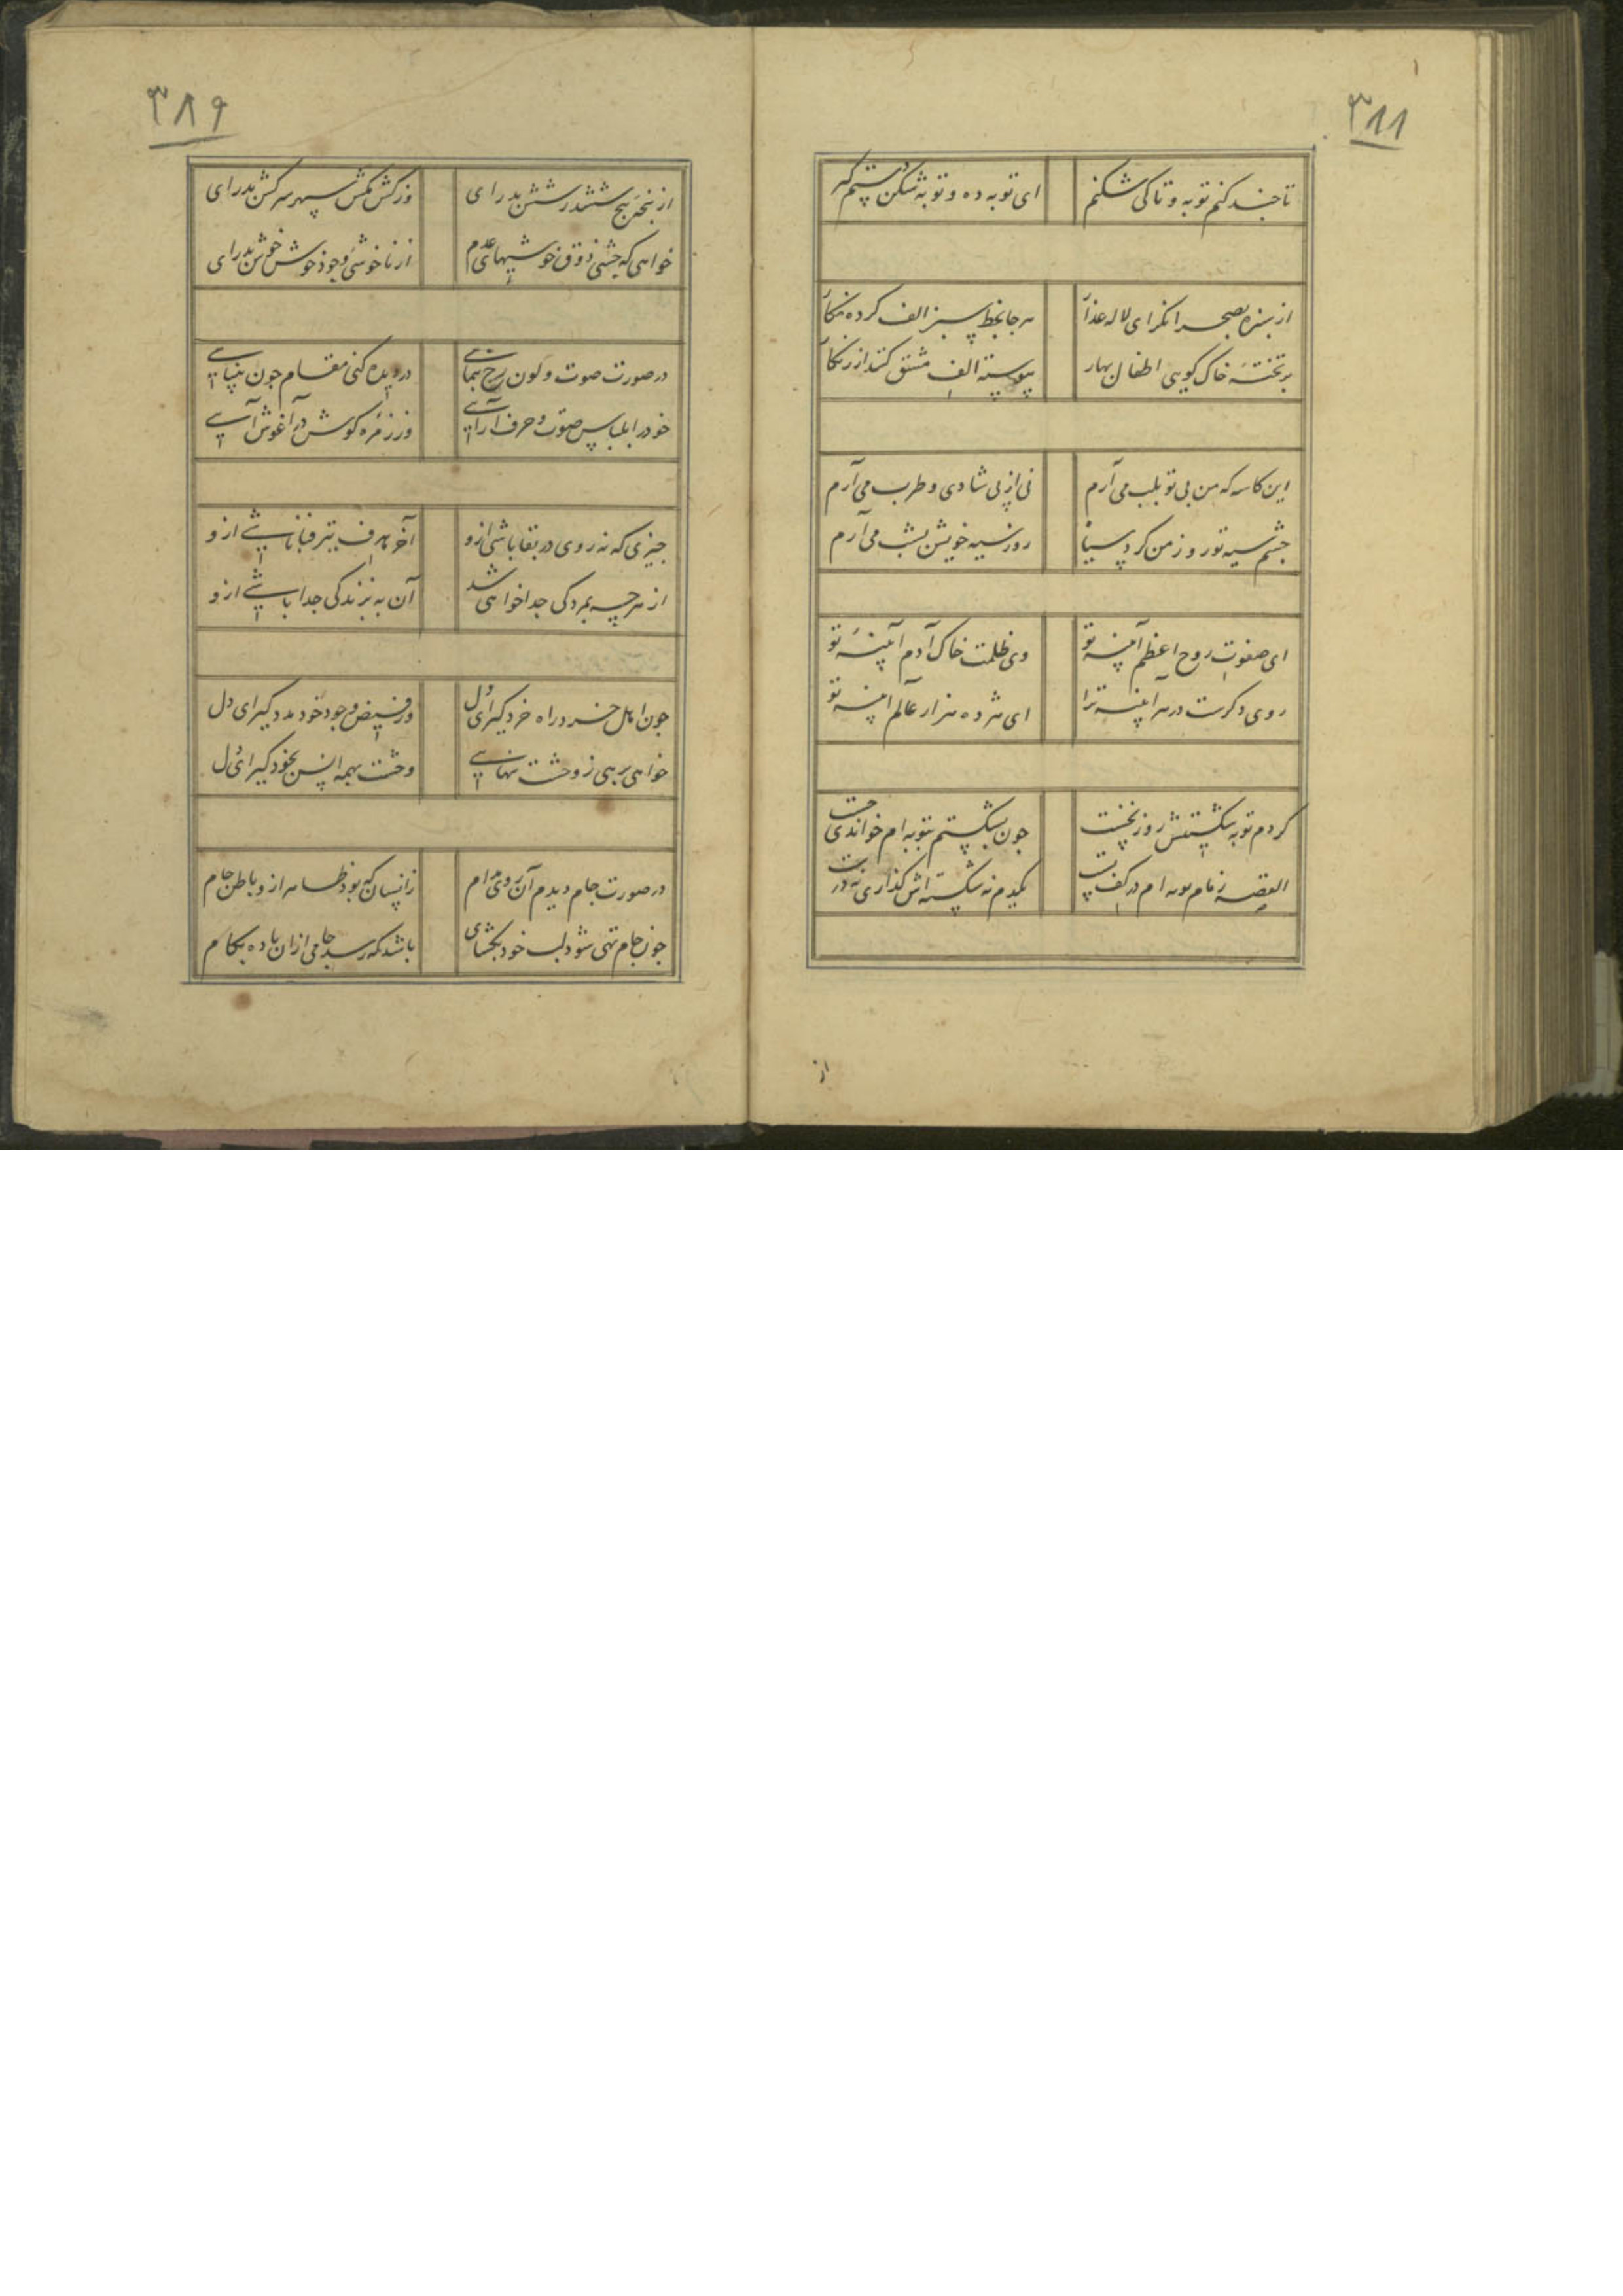 ۳۸۸
تا چند کنم توبه و تاکی شکنم
ای توبه ده و توبه شکن دستم گیر
از سبزه بصحرا نگر ای لاله عذار
هر جا بخط سبز الف کرده نگار
بر تخته خاک گویی اطفال بهار
پیوسته الف مشق کنند از زنگار
این کاسه که من بی تو بلب می آرم
نی از پی شادی و طرب می آرم
چشم سیه تو روز من کرد سیاه
روز سیه خویش بشب می آرم
ای صفوت روح اعظم آیینه تو
وی ظلمت خاک آدم آیینه تو
روی دگرست در هر آیینه ترا
ای هژده هزار عالم آیینه تو
کردم توبه شکستیش روز نخست
چون بشکستم بتوبه ام خواندی چست
القصه زمام توبه ام در کف تست
یکدم نه شکسته اش گذاری نه درست
از
۳۸۹
از پنجه پنج و ششدر شش بدر آی
وز کش مکش سپهر سرکش بدر آی
خواهی که چشی ذوق خوشیهای عدم
از ناخوشی وجود خوش خوش بدر آی
در صورت صوت و لون رخ بنمایی
در دیده کنی مقام چون بینایی
خود را بلباس صوت و حرف آرایی
وز زمزمه گوش در آغوش آیی
چیزی که نه روی در بقا باشی ازو
آخر هدف تیر فنا باشی ازو
از هرچه بمردگی جدا خواهی شد
آن به بزندگی جدا باشی ازو
چون اهل خرد راه خرد گیر ای دل
وز فیض وجود خود مدد گیر ای دل
خواهی برهی ز وحشت تنهایی
وحشت ز همه انس بخود گیر ای دل
در صورت جام دیدم آن روی مدام
زانسان که بود ظاهر ازو باطن جام
چون جام تهی شود لب خود بگشای
باشد که رسد جامی ازان باده بکام